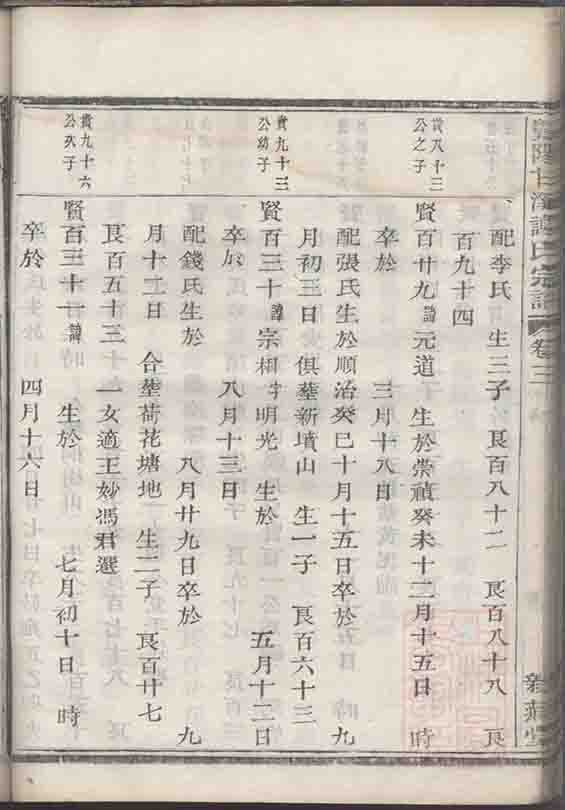 氏宗譜 卷三
配李氏 生三子 艮百八十二 艮百八十八 艮
百九十四
貴八十三
公之子
賢百廿九 諱 元道 生於崇禎癸未十二月十五日 時
卒於 三月十八日
配張氏生於順治癸巳十月十五日卒於 九
月初三日 俱塟新墳山 生一子 艮百六十三
貴九十三
公幼子
賢百三十 諱 宗桐 字 明光 生於 五月十二日
卒於 八月十三日
配錢氏生於 八月廿九日卒於 九
月十二日 合塟荷花塘地 生二子 艮百廿七
艮百五十三 一女適王妙馮君選
貴九十六
公次子
賢百三十一 諱 生於 七月初十日 時
卒於 四月十六日